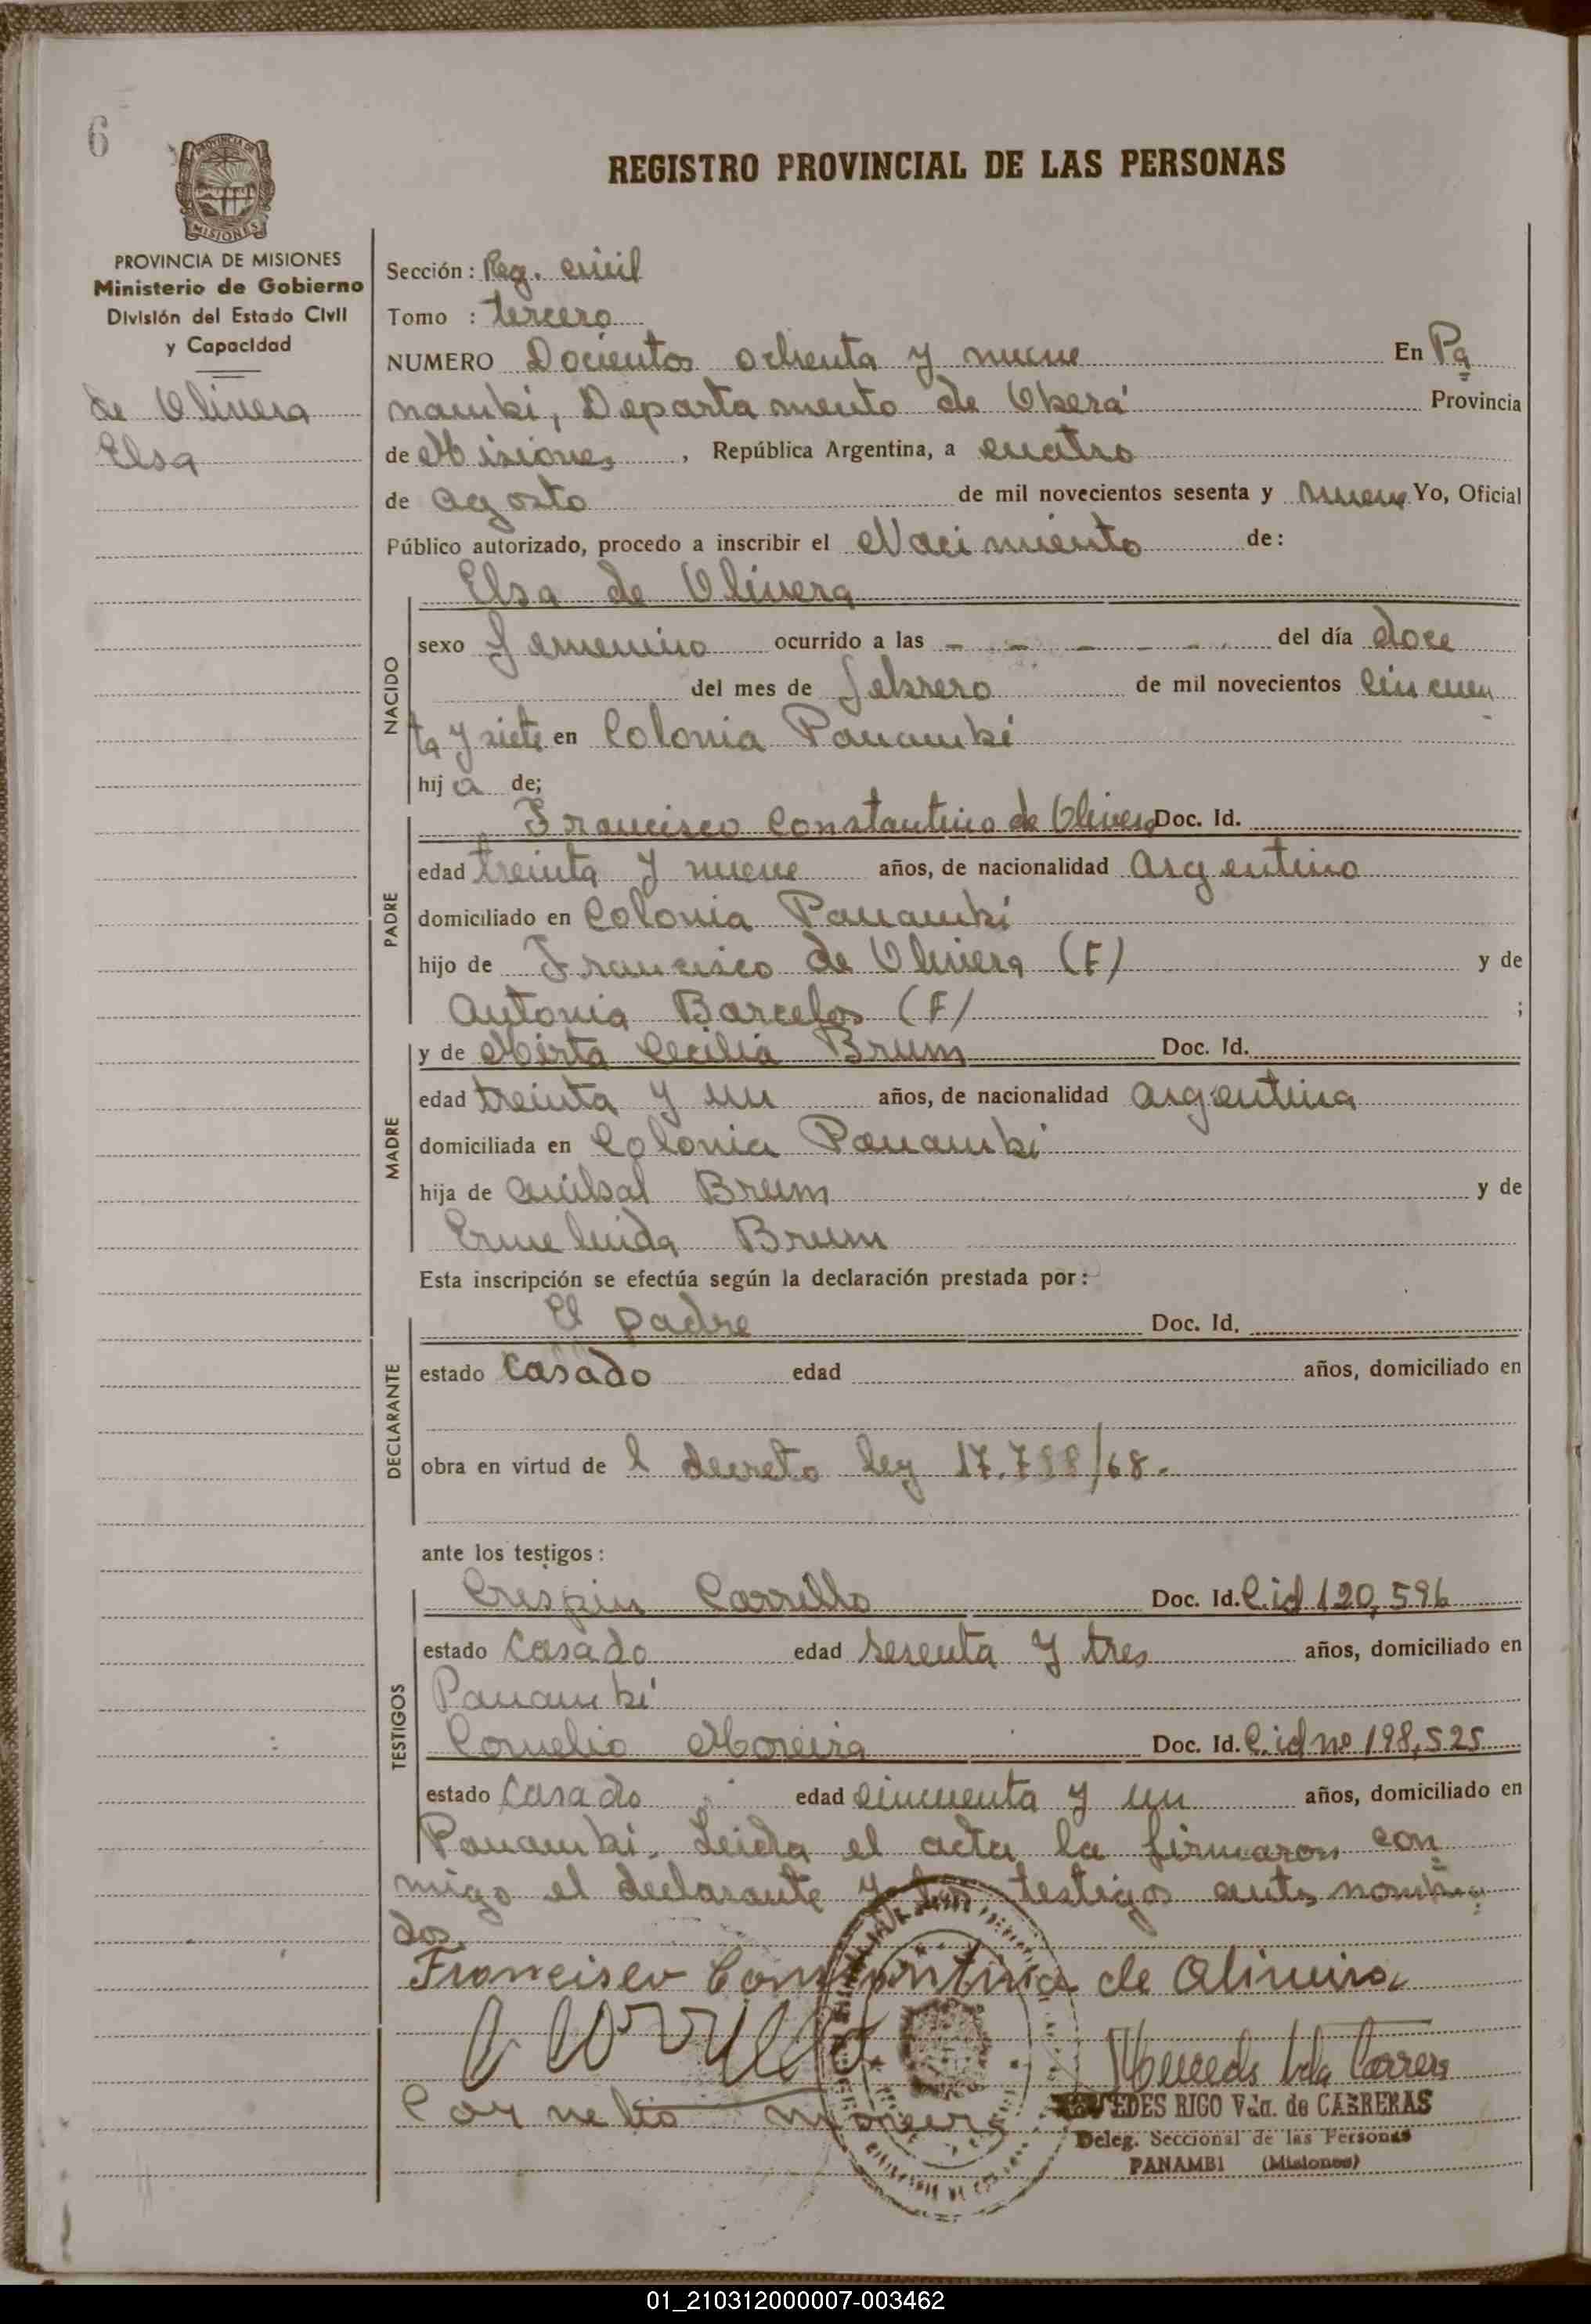 6
REGISTRO PROVINCIAL DE LAS PERSONAS
PROVINCIA DE MISIONES
Ministerio de Gobierno
División del Estado Civil
y Capacidad
de Olivera
Elsa
Sección: Reg. civil
Tomo : tercero
NUMERO Docientos ochenta y nueve En Pa
nambi, Departamento de Oberá Provincia
de Misiones, República Argentina, a cuatro
de agosto de mil novecientos sesenta y nueve Yo, Oficial
Público autorizado, procedo a inscribir el Nacimiento de:
Elsa de Olivera
NACIDO
sexo femenino ocurrido a las - - - - - del día doce
del mes de febrero de mil novecientos cincuen
ta y siete en Colonia Panambí
hija de;
PADRE
Francisco Constantino de Olivera Doc. Id.
edad treinta y nueve años, de nacionalidad argentino
domiciliado en Colonia Panambí
hijo de Francisco de Olivera (F) y de
Antonia Barcelos (F) ;
MADRE
y de Mirta Cecilia Brum Doc. Id.
edad treinta y un años, de nacionalidad argentina
domiciliada en Colonia Panambí
hija de Anibal Brum y de
Ermelinda Brum
Esta inscripción se efectúa según la declaración prestada por:
DECLARANTE
El padre Doc. Id.
estado casado edad años, domiciliado en
obra en virtud de l decreto ley 17.788/68.
ante los testigos:
TESTIGOS
Crespin Carrillo Doc. Id. C.id 120,596
estado casado edad sesenta y tres años, domiciliado en
Panambí
Cornelio Moreira Doc. Id. C.id nº 198,525
estado casado edad cincuenta y un años, domiciliado en
Panambi. Leida el acta la firmaron con
migo el declarante y los testigos antes nombra
dos.
Francisco Constantino de Oliveira
C Carrillo
Cornelio Moreira
Mercedes Vda Carreras
MERCEDES RIGO Vda. de CARRERAS
Deleg. Seccional de las Personas
PANAMBI (Misiones)
01_210312000007-003462